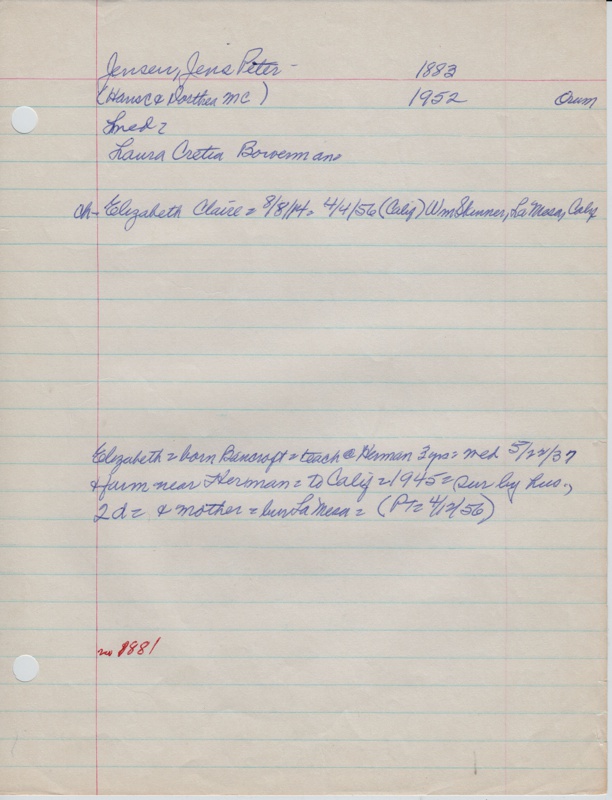 Jensen, Jens Peter - 1883
(Hans C & Dorthea MC) 1952 Orum
med =
Laura Cretia Bowerman
ch- Elizabeth Claire = 8/8/14 = 4/4/56 (Calif) Wm Skinner, La Mesa, Calif
Elizabeth = born Bancroft = teach @ Herman 3 yrs = wed 5/22/37
& farm near Herman = to Calif = 1945 = sur by hus.,
2 d = & mother = bur La Mesa = (PT = 4/12/56)
no 1881